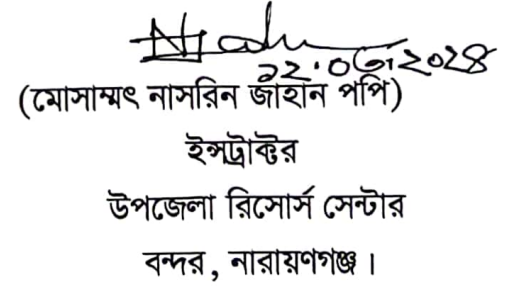 ১২.০৫.২০২৪
(মোসাম্মৎ নাসরিন জাহান পপি)
ইন্সট্রাক্টর
উপজেলা রিসোর্স সেন্টার
বন্দর, নারায়ণগঞ্জ।